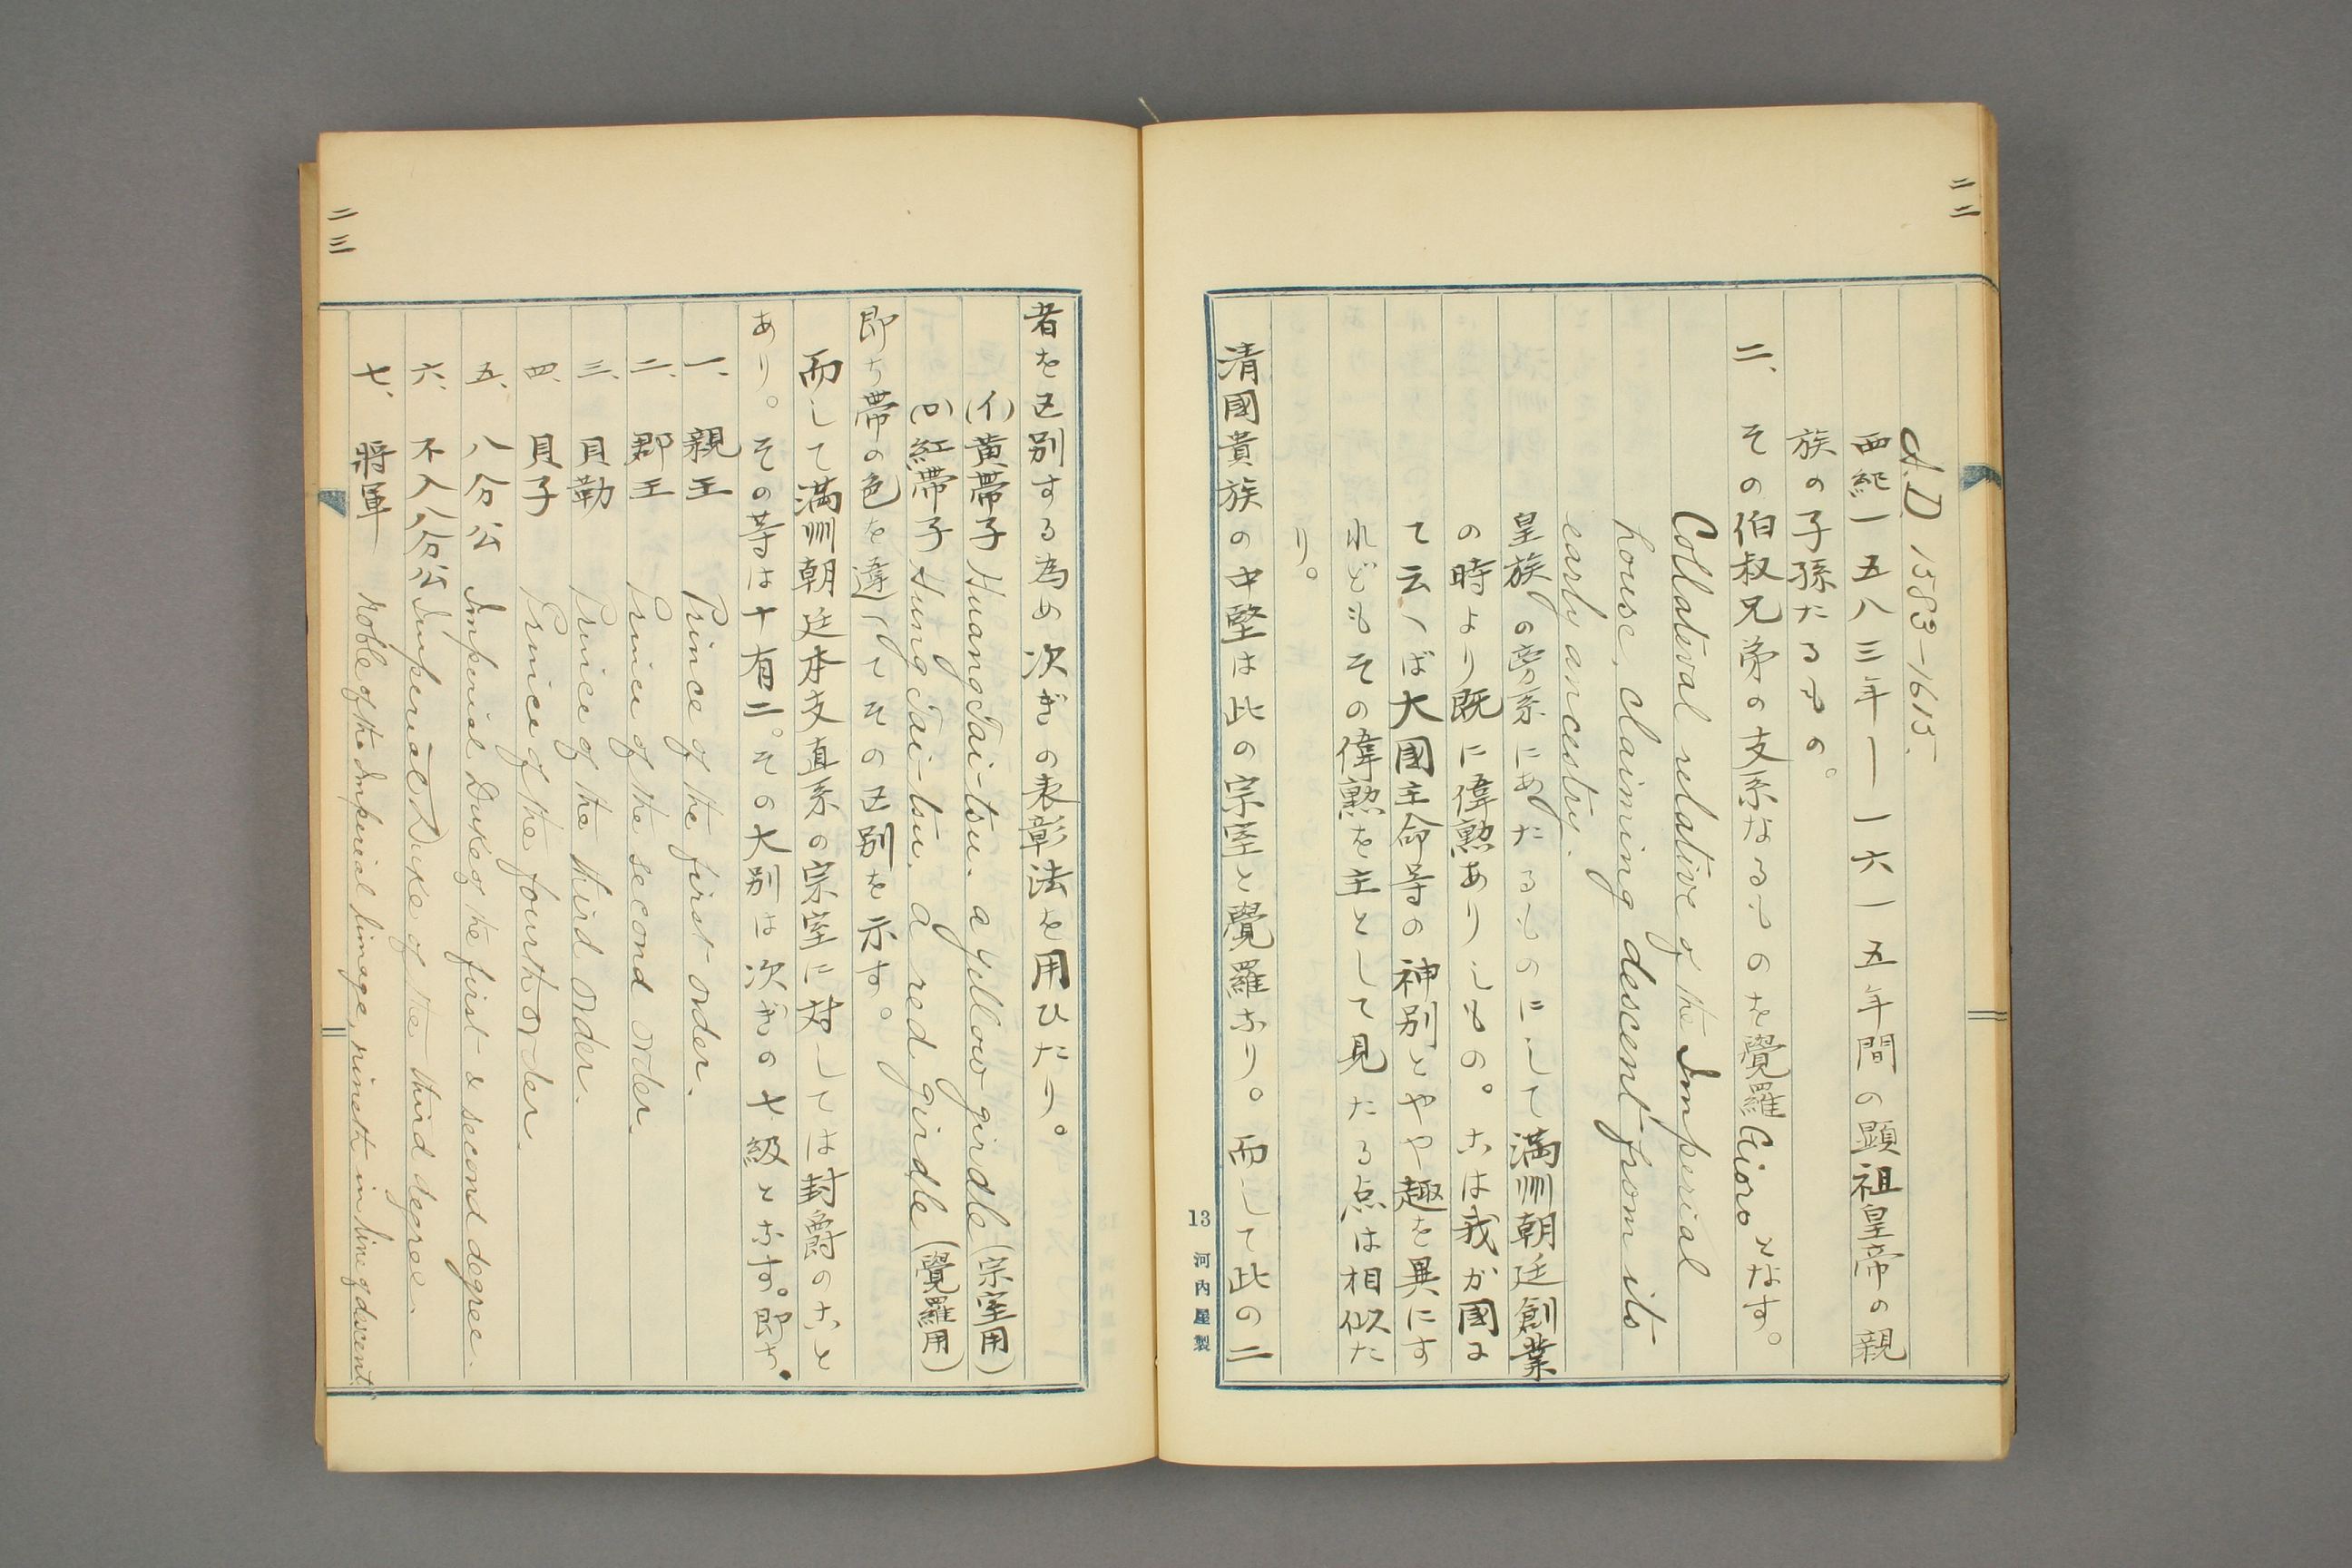 二二
A.D. 1583-1615.
西紀一五八三年―一六一五年間の顕祖皇帝の親
族の子孫たるもの。
二、その伯叔兄弟の支系なるものを覺羅Gioroとなす。
Collateral relative of the Imperial
house, claiming descent from its
early ancestry.
皇族の旁系にあたるものにして満洲朝廷創業
の時より既に偉勲ありしもの。こは我が國に
て云へば大國主命等の神別とやや趣を異にす
れどもその偉勲を主として見たる点は相似た
り。
清國貴族の中堅は此の宗室と覺羅なり。而して此の二
13 河内屋製
二三
者を区別する為め次ぎの表彰法を用ひたり。
(イ)黄帯子 Huang Tai-tsu. a yellow girdle (宗室用)
(ロ)紅帯子 Hung Tai-tsu. a red girdle (覺羅用)
即ち帯の色を違へてその区別を示す。
而して満洲朝廷本支直系の宗室に対しては封爵のこと
あり。その等は十有二。その大別は次ぎの七級となす。即ち。
一、親王 Prince of the first order.
二、郡王 Prince of the second order.
三、貝勒 Prince of the third order.
四、貝子 Prince of the fourth order.
五、八分公 Imperial Duke of the first & second degree.
六、不入八分公 Imperial Duke of the third degree.
七、將軍 Noble of the Imperial linage, nineth in line of descent.